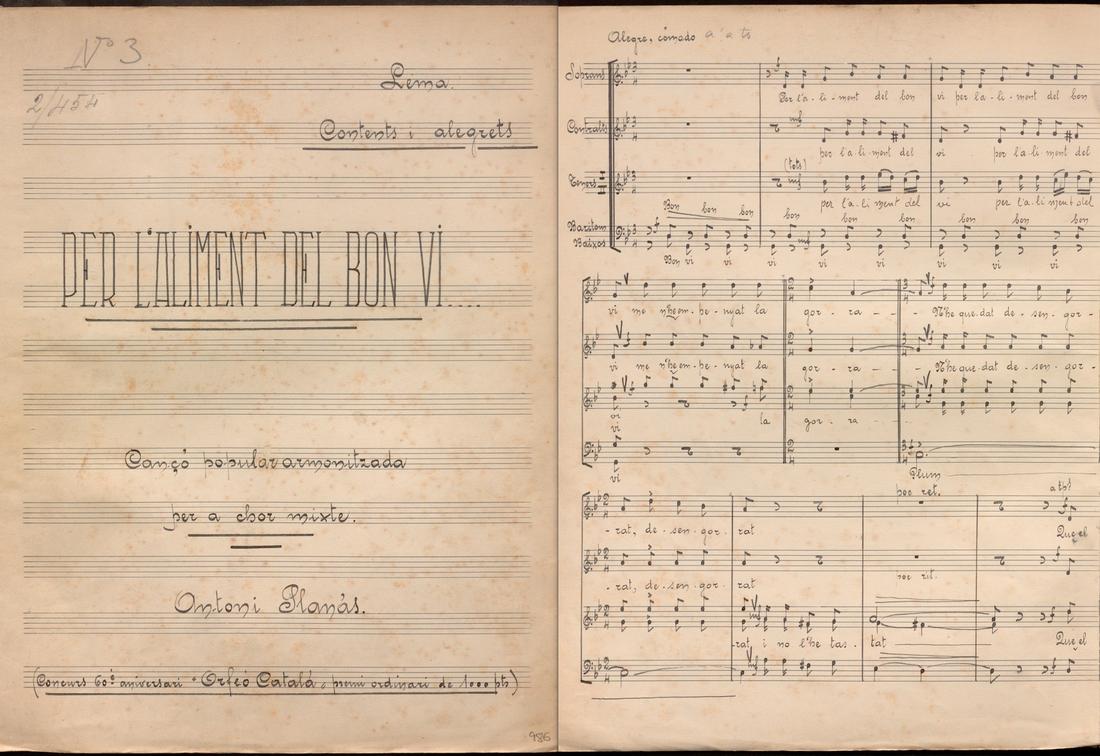 Nº 3
2/454
Lema.
Contents i alegrets
PER L'ALIMENT DEL BON VI....
Cançó popular armonitzada
per a chor mixte.
Antoni Planás.
(Concurs 60è aniversari "Orfeó Catalá", premi ordinari de 1000 pts)
Alegre, cómodo
Soprans
Per l'a-li-ment del bon vi per l'a-li-ment del bon
Contralts
mf
per l'a-li-ment del vi per l'a-li-ment del
(tots)
Tenors I II
mf
per l'a-li-ment del vi per l'a-li-ment del
Bon bon bon bon bon bon bon bon bon
Baritons
Baixos
mf
Bon vi vi vi vi vi vi vi vi
vi me n'he em-pe-nyat la gor-ra - - - N'he que-dat de-sen-gor-
vi me n'he em-pe-nyat la gor-ra - - - N'he que-dat de-sen-gor-
vi
vi
la gor-ra - -
vi
Plum
poc ret.
- rat, de-sen-gor-rat
Que el
poc rit.
- rat, de-sen-gor-rat
mf
-rat, i no l'he tas-tat
Que el